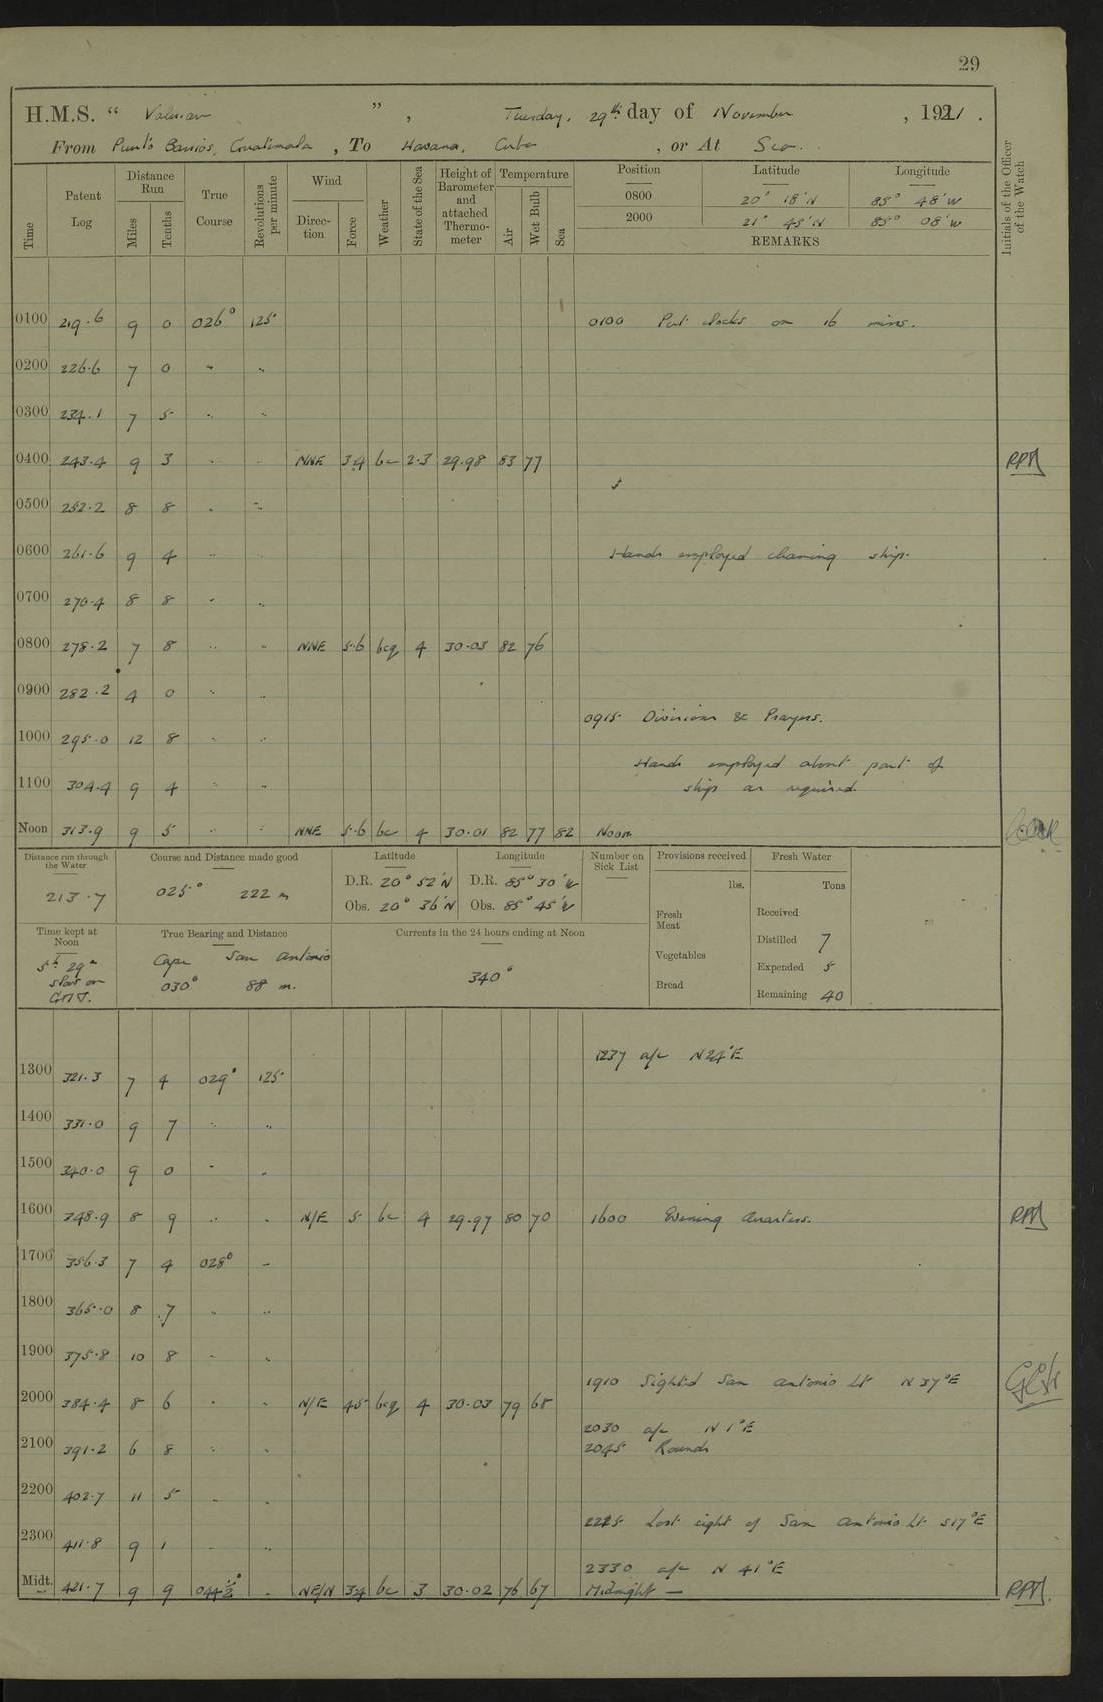 29
H.M.S. “ Valerian ”, Tuesday, 29th day of November, 1921.
From Puerto Barrios, Guatimala, To Havana, Cuba, or At Sea.
Time
Patent Log
Distance Run
Miles
Tenths
True Course
Revolutions per minute
Wind
Direction
Force
Weather
State of the Sea
Height of Barometer and attached Thermometer
Temperature
Air
Wet Bulb
Sea
Position Latitude Longitude
0800 20° 18' N 85° 48' W
2000 21° 45' N 85° 08' W
REMARKS
Initials of the Officer of the Watch
0100 219.6 9 0 026° 125 0100 Put clocks on 16 mins.
0200 226.6 7 0 " "
0300 234.1 7 5 " "
0400 243.4 9 3 " " NNE 3.4 bc 2.3 29.98 83 77
0500 252.2 8 8 " "
0600 261.6 9 4 " " Hands employed cleaning ship.
0700 270.4 8 8 " "
0800 278.2 7 8 " " NNE 5.6 bcq 4 30.03 82 76
0900 282.2 4 0 " "
0915 Divisions & Prayers.
1000 295.0 12 8 " "
Hands employed about part of
1100 304.4 9 4 " " ship as required.
Noon 313.9 9 5 " " NNE 5.6 bc 4 30.01 82 77 82 Noon
Distance run through the Water
213.7
Course and Distance made good
025° 222 m
Latitude
D.R. 20° 52' N
Obs. 20° 36' N
Longitude
D.R. 85° 30' W
Obs. 85° 45' W
Number on Sick List
Provisions received
lbs.
Fresh Meat
Vegetables
Bread
Fresh Water
Tons
Received
Distilled 7
Expended 5
Remaining 40
Time kept at Noon
5h 29m
slow on
G.M.T.
True Bearing and Distance
Cape San Antonio
030° 88 m.
Currents in the 24 hours ending at Noon
340°
1237 a/c N24°E
1300 321.3 7 4 029° 125
1400 331.0 9 7 " "
1500 340.0 9 0 " "
1600 348.9 8 9 " " N/E 5 bc 4 29.97 80 70 1600 Evening Quarters.
1700 356.3 7 4 028° "
1800 365.0 8 7 " "
1900 375.8 10 8 " "
1910 Sighted San Antonio Lt N37°E
2000 384.4 8 6 " " N/E 45 bcq 4 30.03 79 68
2030 a/c N 1°E
2100 391.2 6 8 " " 2045 Rounds
2200 402.7 11 5 " "
2225 Lost sight of San Antonio Lt. S17°E
2300 411.8 9 1 " "
2330 a/c N 41°E
Midt. 421.7 9 9 044½° " NE/N 3.4 bc 3 30.02 76 67 Midnight —